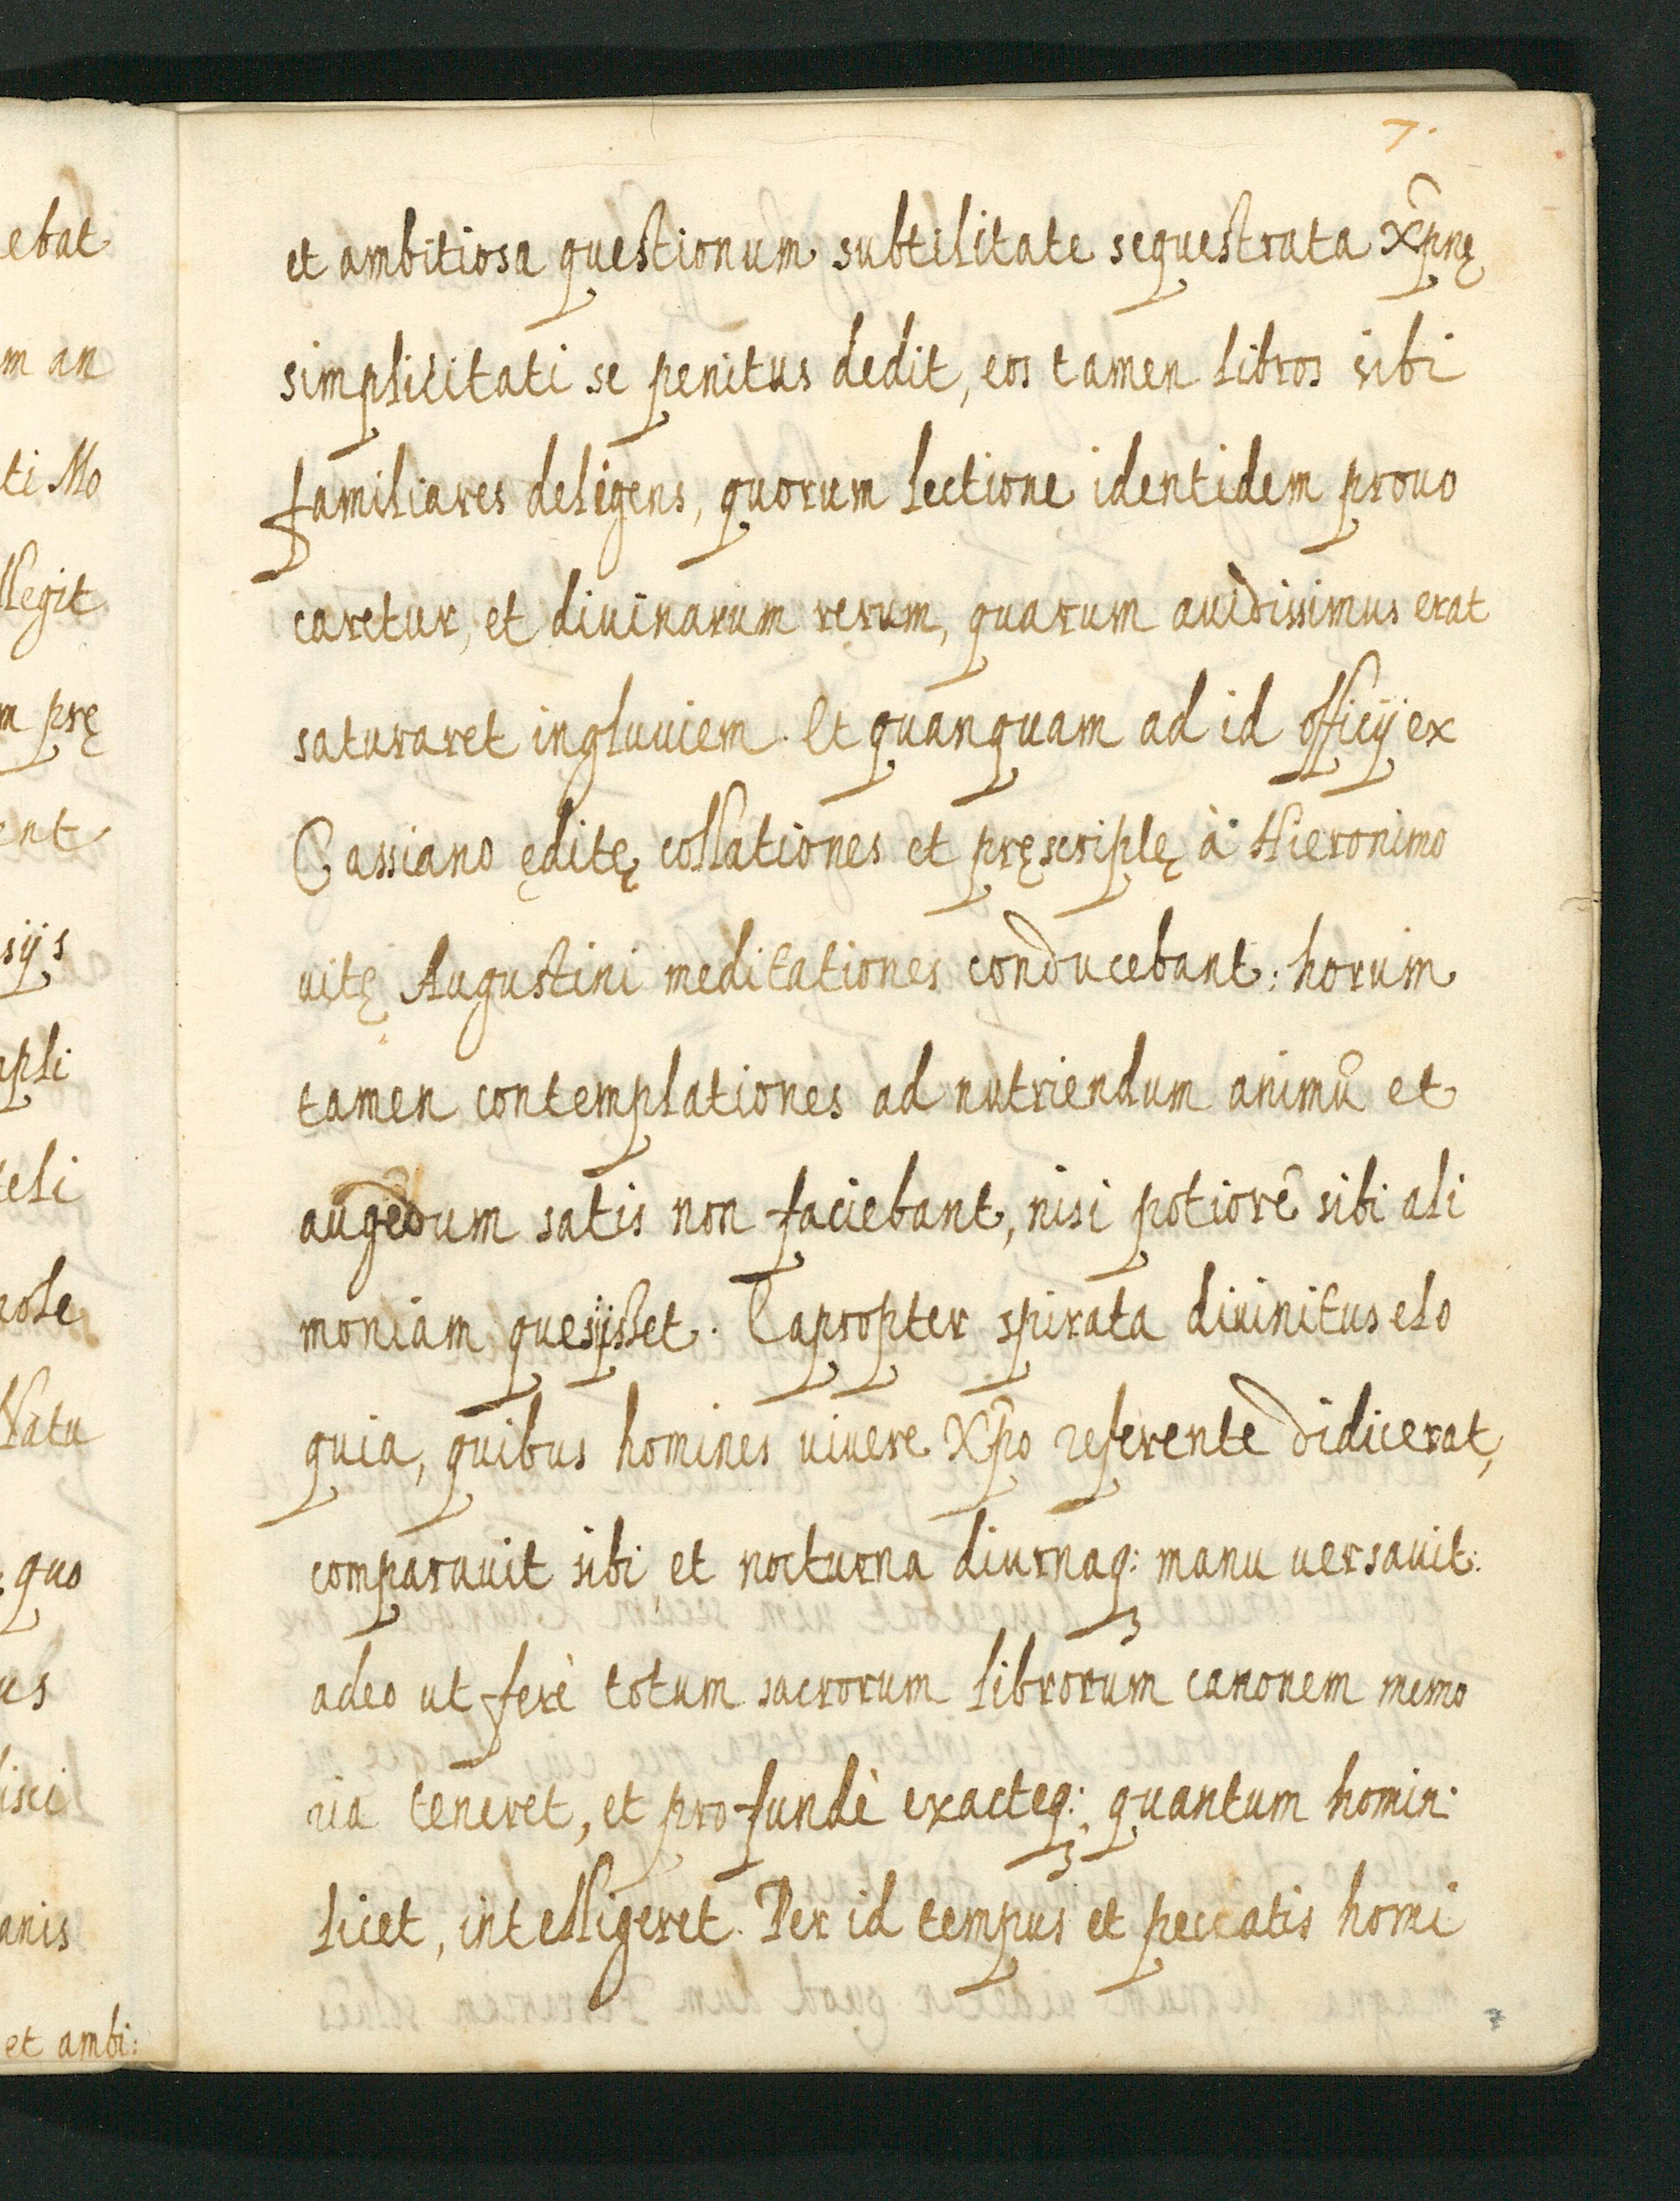 7.
et ambitiosa questionum subtilitate sequestrata Xp̃nę
simplicitati se penitus dedit, eos tamen libros sibi
familiares deligens, quorum lectione identidem prouo
caretur, et diuinarum rerum, quarum auidissimus erat
saturaret ingluuiem. Et quanquam ad id officij ex
Cassiano ęditę collationes et pręscriptę à Hieronimo
uitę Augustini meditationes conducebant: horum
tamen contemplationes ad nutriendum animũ et
augẽdum satis non faciebant, nisi potiorẽ sibi ali
moniam quesijsset. Eapropter spirata diuinitus elo
quia, quibus homines uiuere Xp̃o referente didicerat,
comparauit sibi et nocturna diurnaq: manu uersauit:
adeo ut ferè totum sacrorum librorum canonem memo
ria teneret, et profundè exacteq: quantum homin:
licet, intelligeret. Per id tempus et peccatis homi
7
ebat
m an
ti Mo
llegit
m prę
ent
sijs
pli
teli
nole
Natu
: quo
us
isci
anis
et ambi: